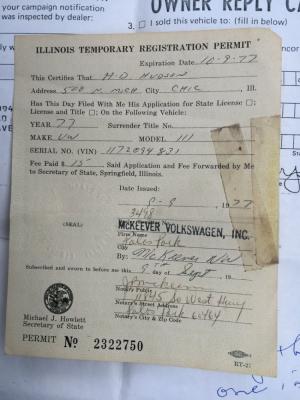 your campaign notification
was inspected by dealer:
OWNER REPLY CA
3. I sold this vehicle to: (fill in below)
ILLINOIS TEMPORARY REGISTRATION PERMIT
Expiration Date 10-8-77
This Certifies That H.D. HUDSON
Address 500 N. MICH. City CHIC, Ill.
Has This Day Filed With Me His Application for State License □;
License and Title □; On the Following Vehicle:
YEAR 77 Surrender Title No.
MAKE VW MODEL 111
SERIAL NO. (VIN) 1172094831
Fee Paid $ 15 Said Application and Fee Forwarded by Me
to Secretary of State, Springfield, Illinois.
Date Issued:
8-8 1977
3498
(SEAL)
McKEEVER VOLKSWAGEN, INC.
Firm Name
City
By: McKeever VW
Subscribed and sworn to before me this 9 day of Sept, 19
Notary Public
11845 So West Hwy
Notary's Street Address
Palos Park 60464
Notary's City & Zip Code
Michael J. Howlett
Secretary of State
PERMIT No 2322750
RT-2
one